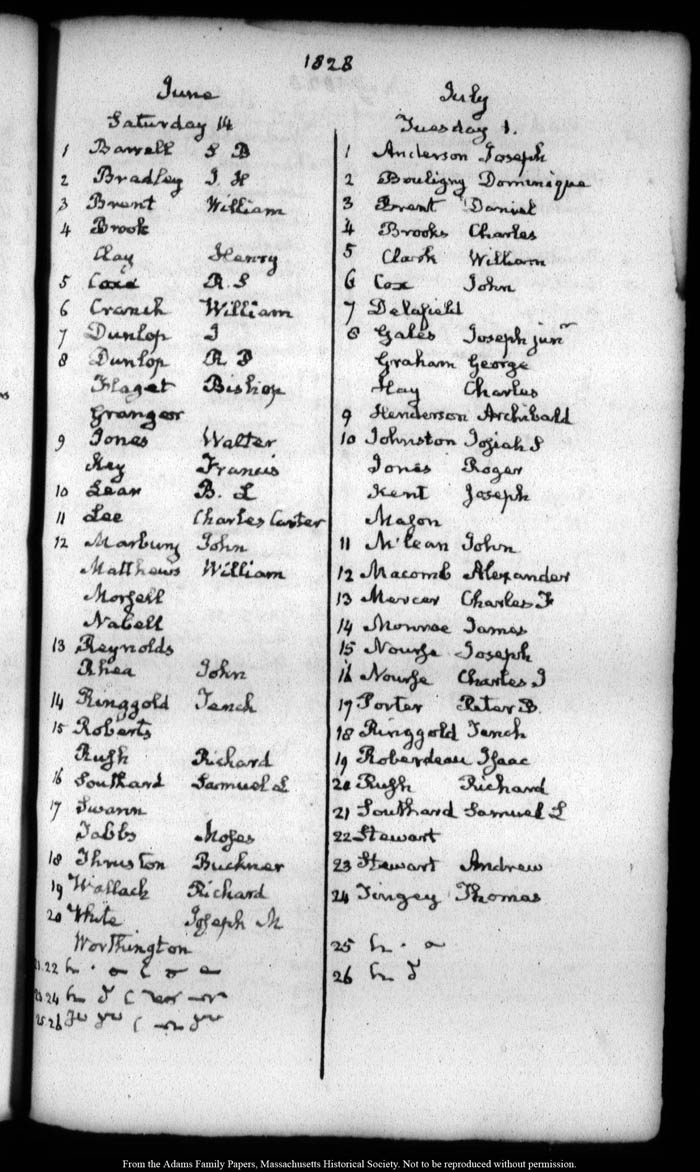 1828
June
Saturday 14
1 Barrell S B
2 Bradley J H
3 Brent William
4 Brook
Clay Henry
5 Coxe R. S
6 Cranch William
7 Dunlop J
8 Dunlop R P
Flaget Bishop
Granger
9 Jones Walter
Key Francis
10 Lear B. L
11 Lee Charles Carter
12 Marbury John
Matthews William
Morfell
Nabell
13 Reynolds
Rhea John
14 Ringgold Tench
15 Roberts
Rush Richard
16 Southard Samuel L
17 Swann
Tabbs Moses
18 Thruston Buckner
19 Wallach Richard
20 White Joseph M
Worthington
21.22
23 24
25 26
July
Tuesday 1.
1 Anderson Joseph
2 Bouligny Dominique
3 Brent Daniel
4 Brooks Charles
5 Clark William
6 Cox John
7 Delafield
8 Gales Joseph junr
Graham George
Hay Charles
9 Henderson Archibald
10 Johnston Josiah S
Jones Roger
Kent Joseph
Mason
11 McLean John
12 Macomb Alexander
13 Mercer Charles F
14 Monroe James
15 Nourse Joseph
16 Nourse Charles J
17 Porter Peter B.
18 Ringgold Tench
19 Roberdeau Isaac
20 Rush Richard
21 Southard Samuel L
22 Stewart
23 Stewart Andrew
24 Tingey Thomas
25
26
From the Adams Family Papers, Massachusetts Historical Society. Not to be reproduced without permission.